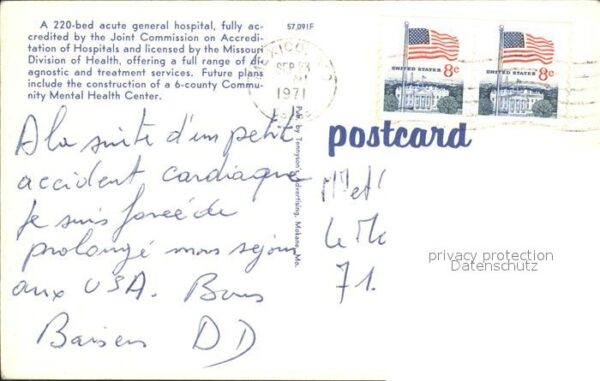 A 220-bed acute general hospital, fully ac-
credited by the Joint Commission on Accredi-
tation of Hospitals and licensed by the Missouri
Division of Health, offering a full range of di-
agnostic and treatment services. Future plans
include the construction of a 6-county Commu-
nity Mental Health Center.
57,091F
MEXICO, MO
SEP 23
1971
UNITED STATES 8c
UNITED STATES 8c
postcard
Pub. by Tennyson Advertising, Mokane, Mo.
A la suite d'un petit
accident cardiaque
je suis forcée de
prolongé mon séjour
aux USA. Bons
Baisers DD
Mr et
le
71.
privacy protection
Datenschutz